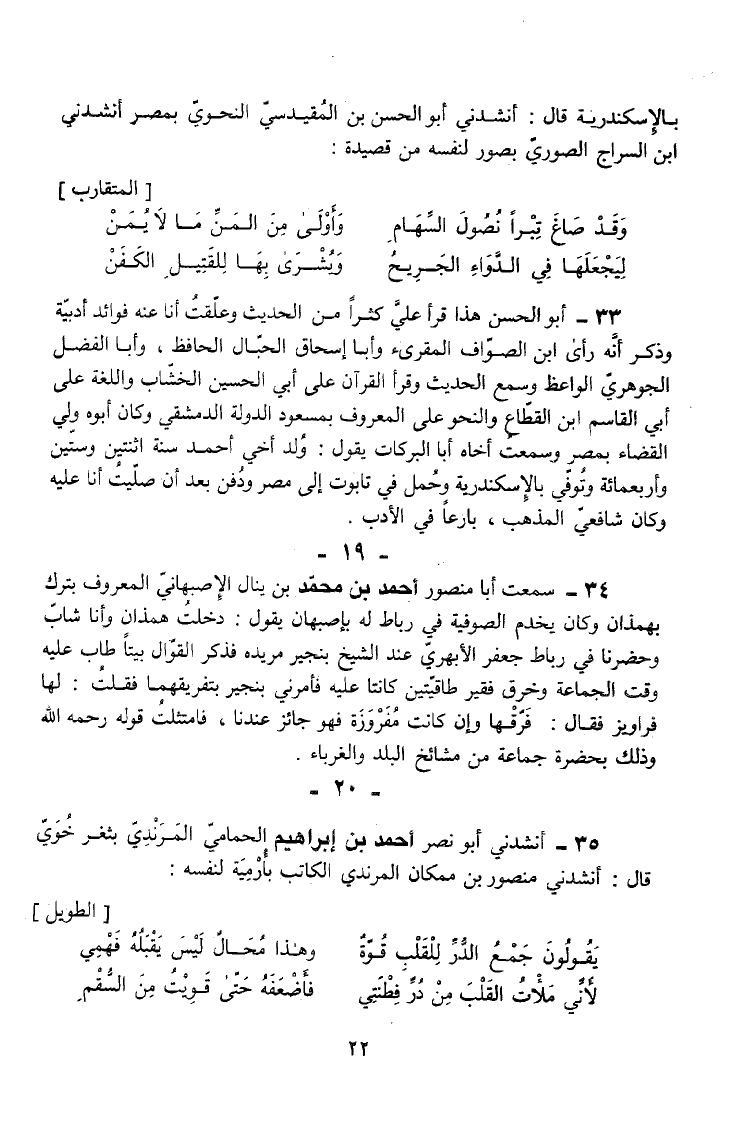 بالإسكندرية قال : أنشدني أبو الحسن بن المُقيدسيّ النحويّ بمصر أنشدني
ابن السراج الصوريّ بصور لنفسه من قصيدة :
[ المتقارب ]
وَقَدْ صَاغَ تِبْراً نُصُولَ السِّهَامِ وَأَوْلَىٰ مِنَ المَنِّ مَا لَا يُمَنْ
لِيَجْعَلَهَا فِي الدَّوَاءِ الجَرِيحُ وَيُشْرَىٰ بِهَا لِلقَتِيلِ الكَفَنْ
٣٣ ـ أبو الحسن هذا قرأ عليَّ كثراً من الحديث وعلّقتُ أنا عنه فوائد أدبيّة
وذكر أنَّه رأىٰ ابن الصوّاف المقرىء وأبا إسحاق الحبّال الحافظ ، وأبا الفضل
الجوهريّ الواعظ وسمع الحديث وقرأ القرآن على أبي الحسين الخشّاب واللغة على
أبي القاسم ابن القطّاع والنحو على المعروف بمسعود الدولة الدمشقي وكان أبوه ولي
القضاء بمصر وسمعتُ أخاه أبا البركات يقول : وُلد أخي أحمد سنة اثنتين وستّين
وأربعمائة وتُوفّي بالإسكندرية وحُمل في تابوت إلى مصر ودُفن بعد أن صلّيتُ أنا عليه
وكان شافعيّ المذهب ، بارعاً في الأدب .
- ١٩ -
٣٤ ـ سمعت أبا منصور أحمد بن محمّد بن ينال الإصبهانيّ المعروف بترك
بهمذان وكان يخدم الصوفية في رباط له بإصبهان يقول : دخلتُ همذان وأنا شابّ
وحضرنا في رباط جعفر الأبهريّ عند الشيخ بنجير مريده فذكر القوّال بيتاً طاب عليه
وقت الجماعة وخرق فقير طاقيّتين كانتا عليه فأمرني بنجير بتفريقهما فقلتُ : لها
فراويز فقال : فَرِّقْها وإن كانت مُفَرْوَزَة فهو جائز عندنا ، فامتثلتُ قوله رحمه الله
وذلك بحضرة جماعة من مشائخ البلد والغرباء .
- ٢٠ -
٣٥ ـ أنشدني أبو نصر أحمد بن إبراهيم الحماميّ المَرَنْدِيّ بثغر خُوَيّ
قال : أنشدني منصور بن ممكان المرندي الكاتب بأُرْمِيَة لنفسه :
[ الطويل ]
يَقُولُونَ جَمْعُ الدُّرِّ لِلْقَلْبِ قُوَّةٌ وهـٰذا مُحَالٌ لَيْسَ يَقْبَلُهُ فَهْمِي
لأَنِّي مَلأْتُ القَلْبَ مِنْ دُرِّ فِطْنَتِي فَأَضْعَفَهُ حَتَّىٰ قَوِيْتُ مِنَ السُّقْمِ
٢٢